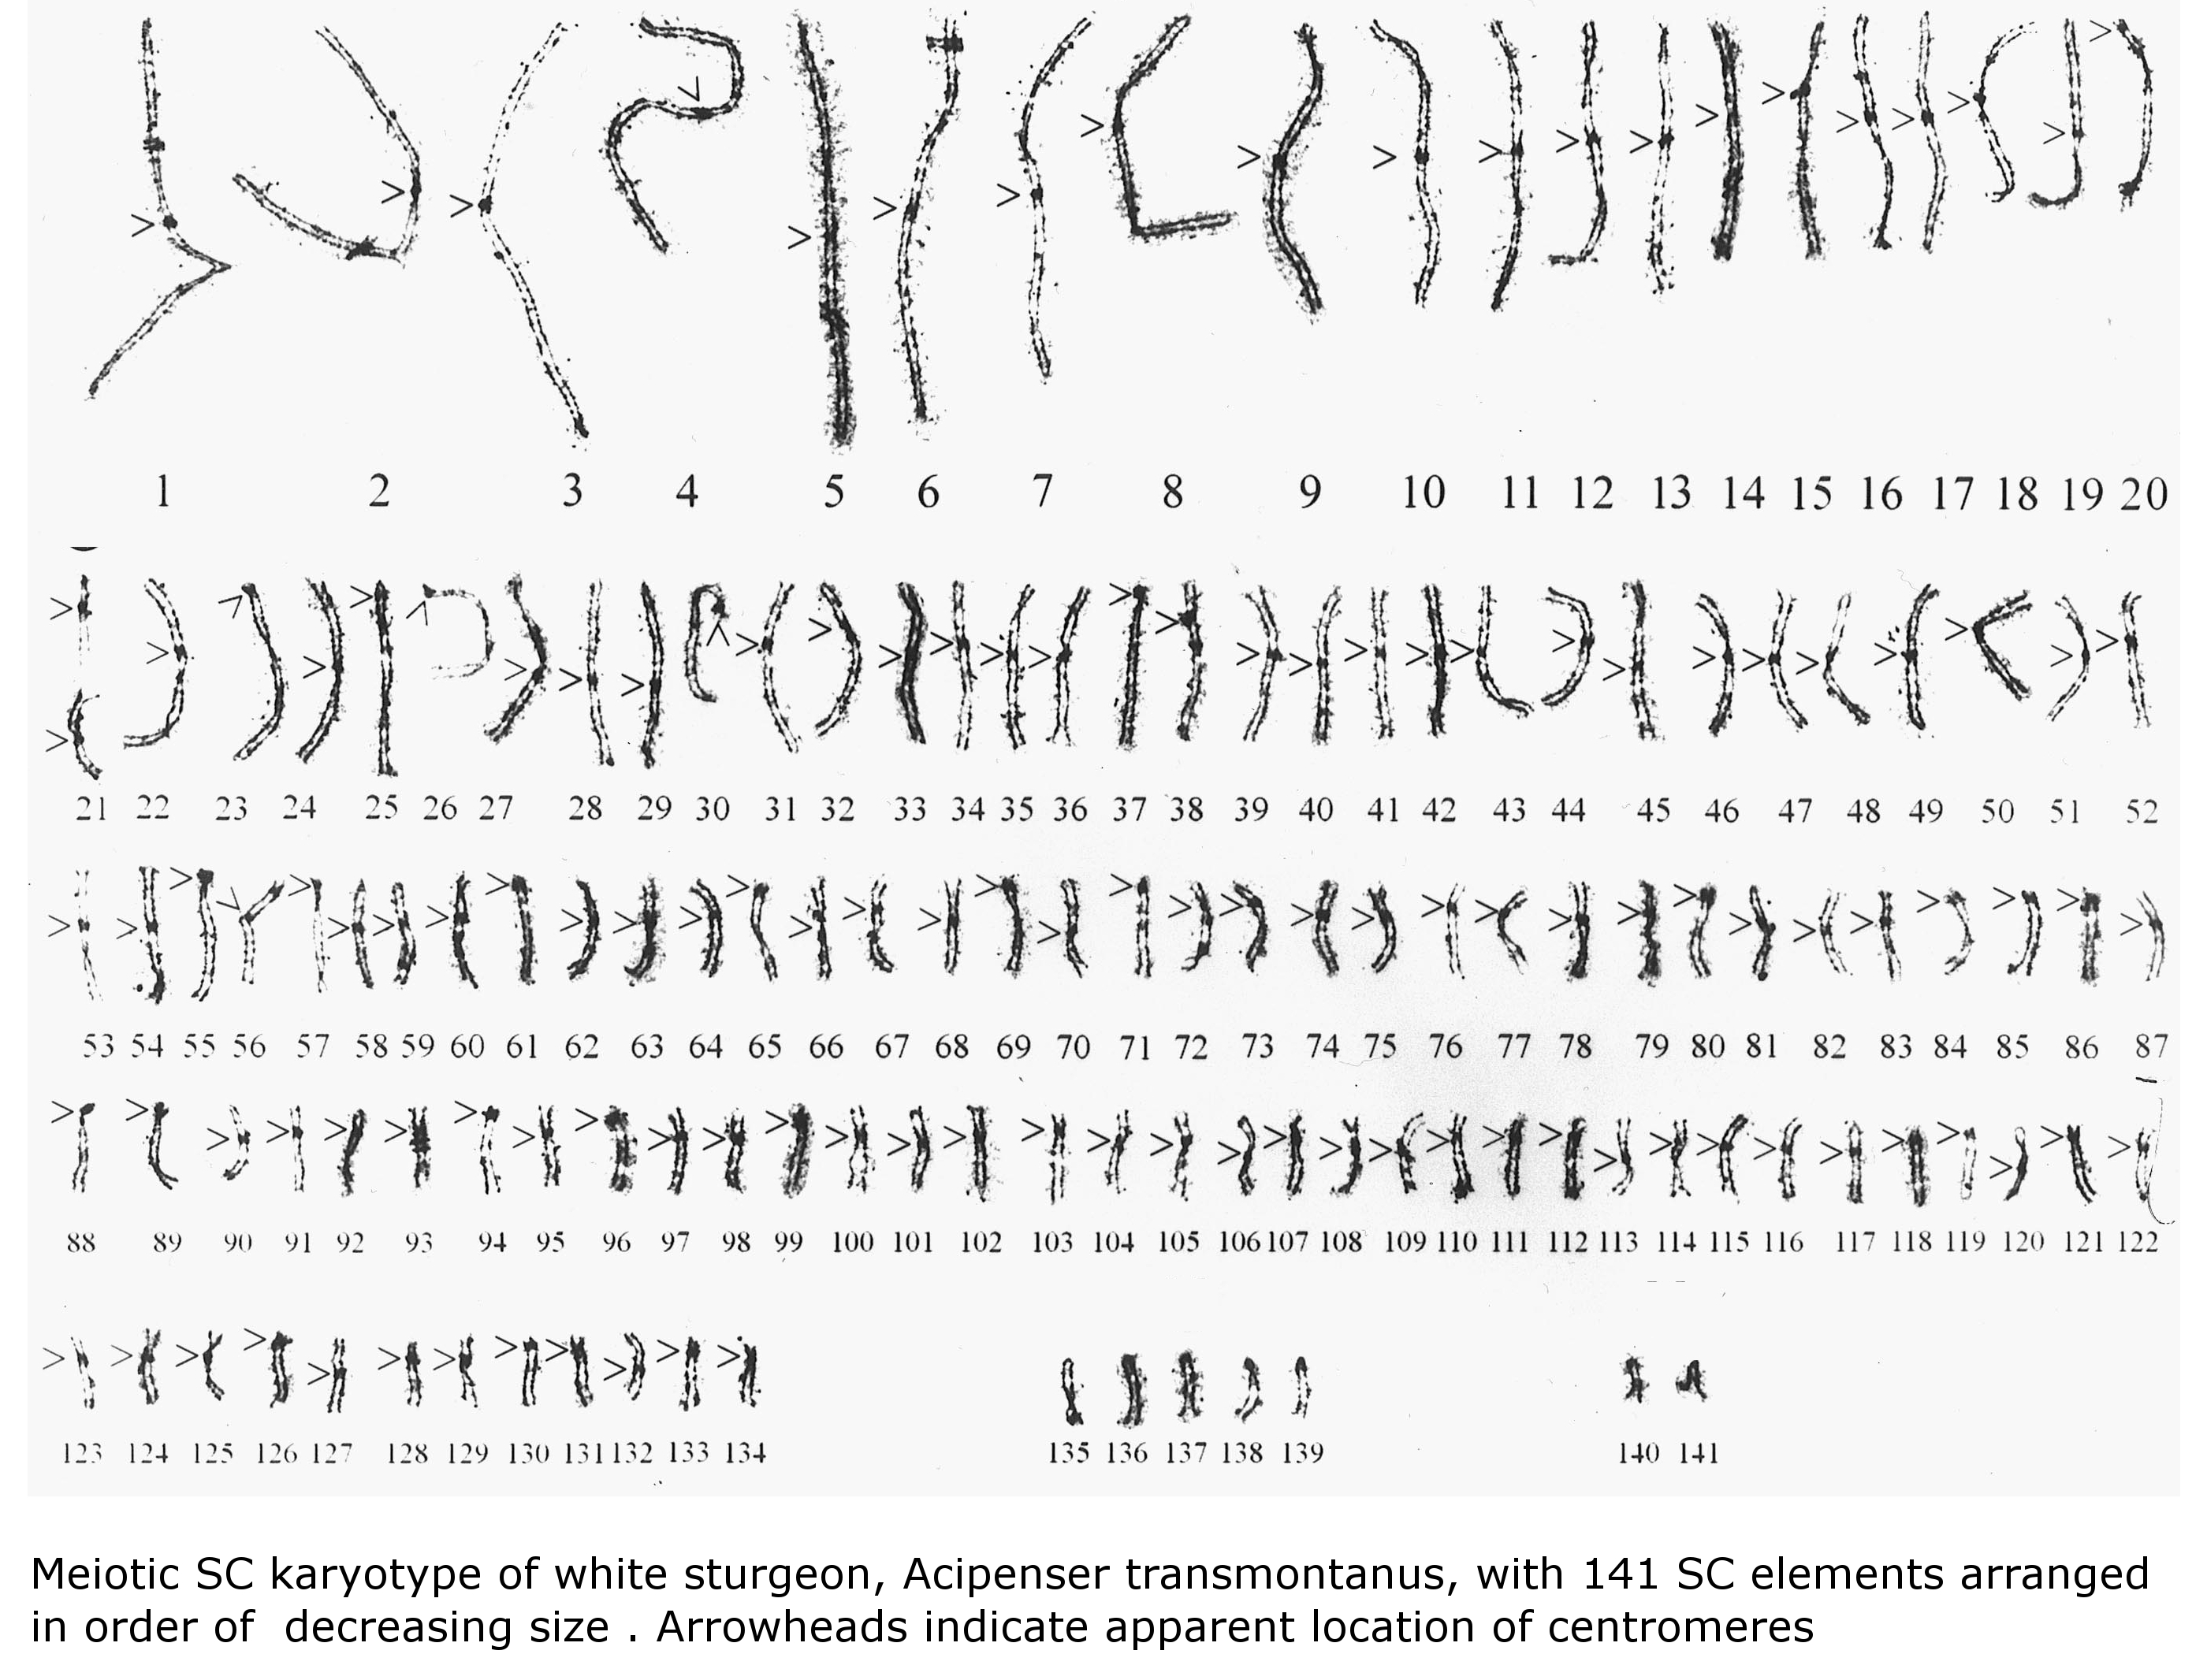 1 2 3 4 5 6 7 8 9 10 11 12 13 14 15 16 17 18 19 20
21 22 23 24 25 26 27 28 29 30 31 32 33 34 35 36 37 38 39 40 41 42 43 44 45 46 47 48 49 50 51 52
53 54 55 56 57 58 59 60 61 62 63 64 65 66 67 68 69 70 71 72 73 74 75 76 77 78 79 80 81 82 83 84 85 86 87
88 89 90 91 92 93 94 95 96 97 98 99 100 101 102 103 104 105 106 107 108 109 110 111 112 113 114 115 116 117 118 119 120 121 122
123 124 125 126 127 128 129 130 131 132 133 134 135 136 137 138 139 140 141
Meiotic SC karyotype of white sturgeon, Acipenser transmontanus, with 141 SC elements arranged
in order of  decreasing size . Arrowheads indicate apparent location of centromeres